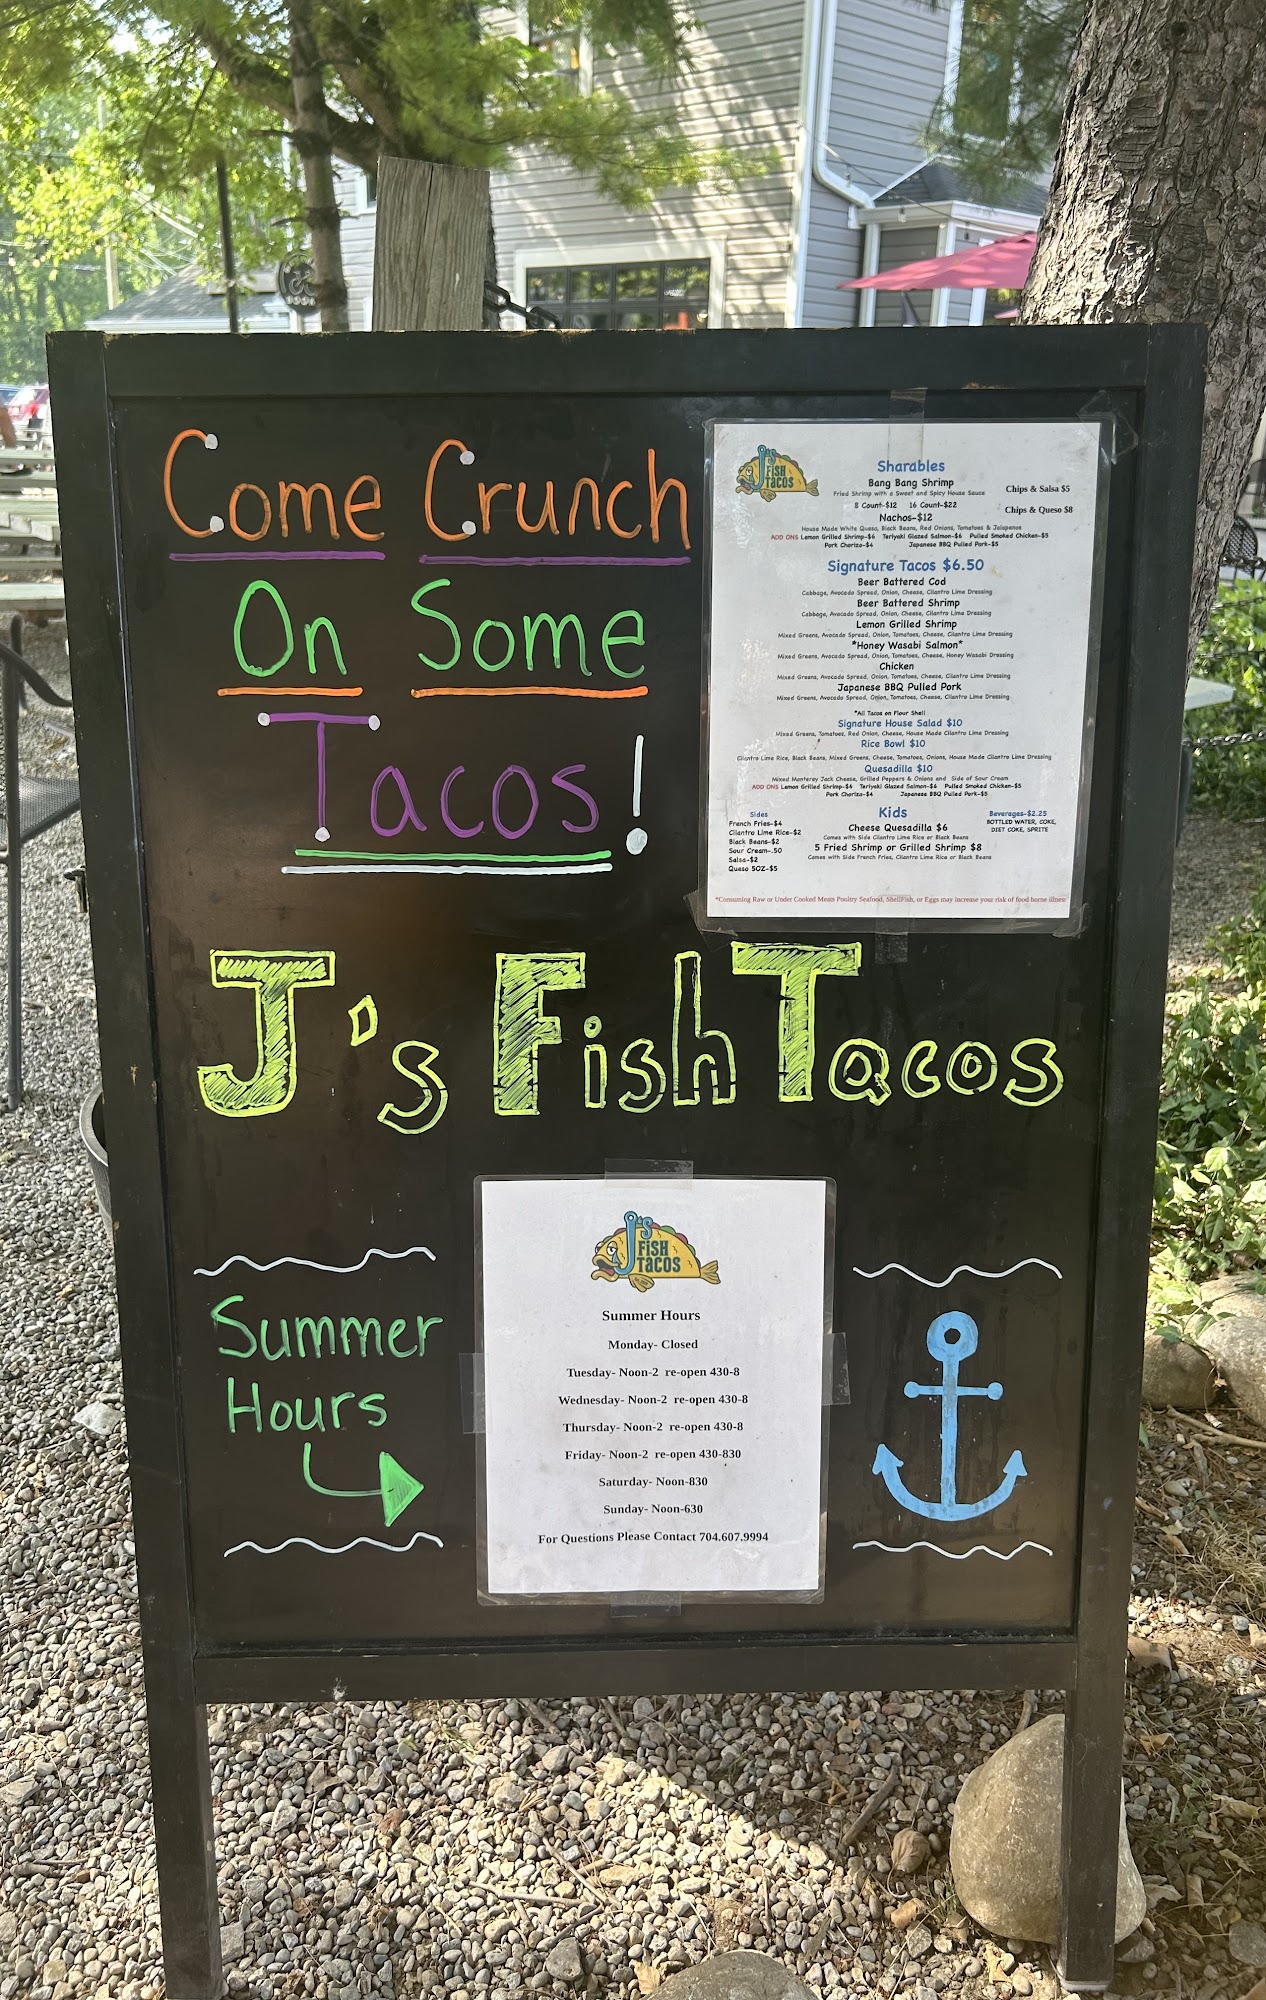 Come Crunch
On Some
Tacos!
J's
FISH
TACOS
Sharables
Bang Bang Shrimp
Fried Shrimp with a Sweet and Spicy House Sauce
8 Count-$12 16 Count-$22
Nachos-$12
House Made White Queso, Black Beans, Red Onions, Tomatoes & Jalapenos
ADD ONS Lemon Grilled Shrimp-$6 Teriyaki Glazed Salmon-$6 Pulled Smoked Chicken-$5
Pork Chorizo-$4 Japanese BBQ Pulled Pork-$5
Chips & Salsa $5
Chips & Queso $8
Signature Tacos $6.50
Beer Battered Cod
Cabbage, Avocado Spread, Onion, Cheese, Cilantro Lime Dressing
Beer Battered Shrimp
Cabbage, Avocado Spread, Onion, Cheese, Cilantro Lime Dressing
Lemon Grilled Shrimp
Mixed Greens, Avocado Spread, Onion, Tomatoes, Cheese, Cilantro Lime Dressing
*Honey Wasabi Salmon*
Mixed Greens, Avocado Spread, Onion, Tomatoes, Cheese, Honey Wasabi Dressing
Chicken
Mixed Greens, Avocado Spread, Onion, Tomatoes, Cheese, Cilantro Lime Dressing
Japanese BBQ Pulled Pork
Mixed Greens, Avocado Spread, Onion, Tomatoes, Cheese, Cilantro Lime Dressing
*All Tacos on Flour Shell
Signature House Salad $10
Mixed Greens, Tomatoes, Red Onion, Cheese, House Made Cilantro Lime Dressing
Rice Bowl $10
Cilantro Lime Rice, Black Beans, Mixed Greens, Cheese, Tomatoes, Onions, House Made Cilantro Lime Dressing
Quesadilla $10
Mixed Monterey Jack Cheese, Grilled Peppers & Onions and Side of Sour Cream
ADD ONS Lemon Grilled Shrimp-$6 Teriyaki Glazed Salmon-$6 Pulled Smoked Chicken-$5
Pork Chorizo-$4 Japanese BBQ Pulled Pork-$5
Sides
French Fries-$4
Cilantro Lime Rice-$2
Black Beans-$2
Sour Cream-.50
Salsa-$2
Queso 5OZ-$5
Kids
Cheese Quesadilla $6
Comes with Side Cilantro Lime Rice or Black Beans
5 Fried Shrimp or Grilled Shrimp $8
Comes with Side French Fries, Cilantro Lime Rice or Black Beans
Beverages-$2.25
BOTTLED WATER, COKE,
DIET COKE, SPRITE
*Consuming Raw or Under Cooked Meats Poultry Seafood, ShellFish, or Eggs may increase your risk of food borne illness
J's Fish Tacos
J's
FISH
TACOS
Summer
Hours
Summer Hours
Monday- Closed
Tuesday- Noon-2 re-open 430-8
Wednesday- Noon-2 re-open 430-8
Thursday- Noon-2 re-open 430-8
Friday- Noon-2 re-open 430-830
Saturday- Noon-830
Sunday- Noon-630
For Questions Please Contact 704.607.9994